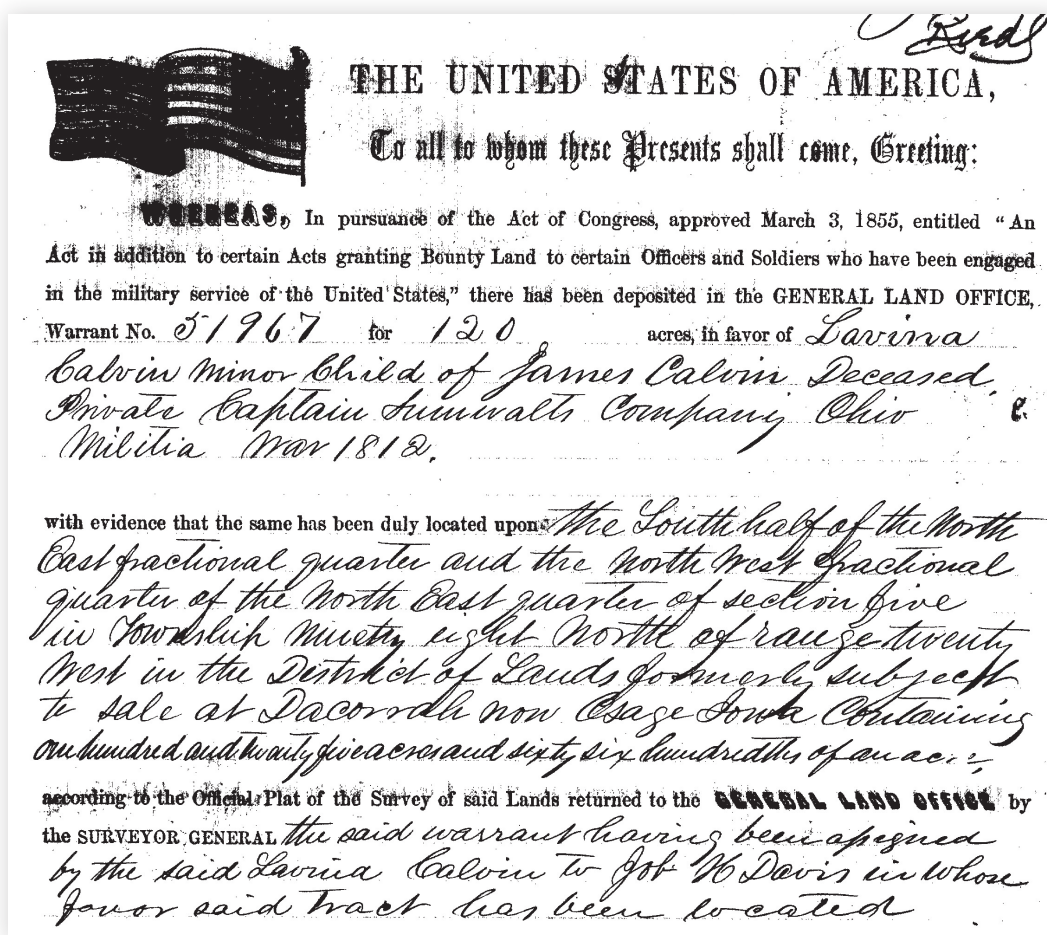 Recd
THE UNITED STATES OF AMERICA,
To all to whom these Presents shall come, Greeting:
WHEREAS, In pursuance of the Act of Congress, approved March 3, 1855, entitled "An
Act in addition to certain Acts granting Bounty Land to certain Officers and Soldiers who have been engaged
in the military service of the United States," there has been deposited in the GENERAL LAND OFFICE,
Warrant No. 51967 for 120 acres, in favor of Lavina
Calvin minor Child of James Calvin Deceased,
Private Captain Sumwalts Company Ohio
Militia War 1812.
with evidence that the same has been duly located upon the South half of the North
East fractional quarter and the North West fractional
quarter of the North East quarter of section five
in Township Ninety eight North of range twenty
West in the District of Lands formerly subject
to sale at Dacorrah now Osage Iowa Containing
one hundred and twenty five acres and sixty six hundredths of an acre,
according to the Official Plat of the Survey of said Lands returned to the GENERAL LAND OFFICE by
the SURVEYOR GENERAL the said warrant having been assigned
by the said Lavina Calvin to Job W Davis in whose
favor said tract has been located